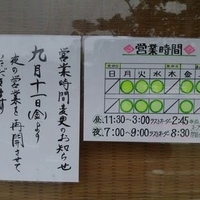 営業時間変更のお知らせ
九月十一日(金)より
夜の営業を再開させて
いただきます
営業時間
日月火水木金
昼 11:30~3:00 ラストオーダー 2:45
夜 7:00~9:00 ラストオーダー 8:30